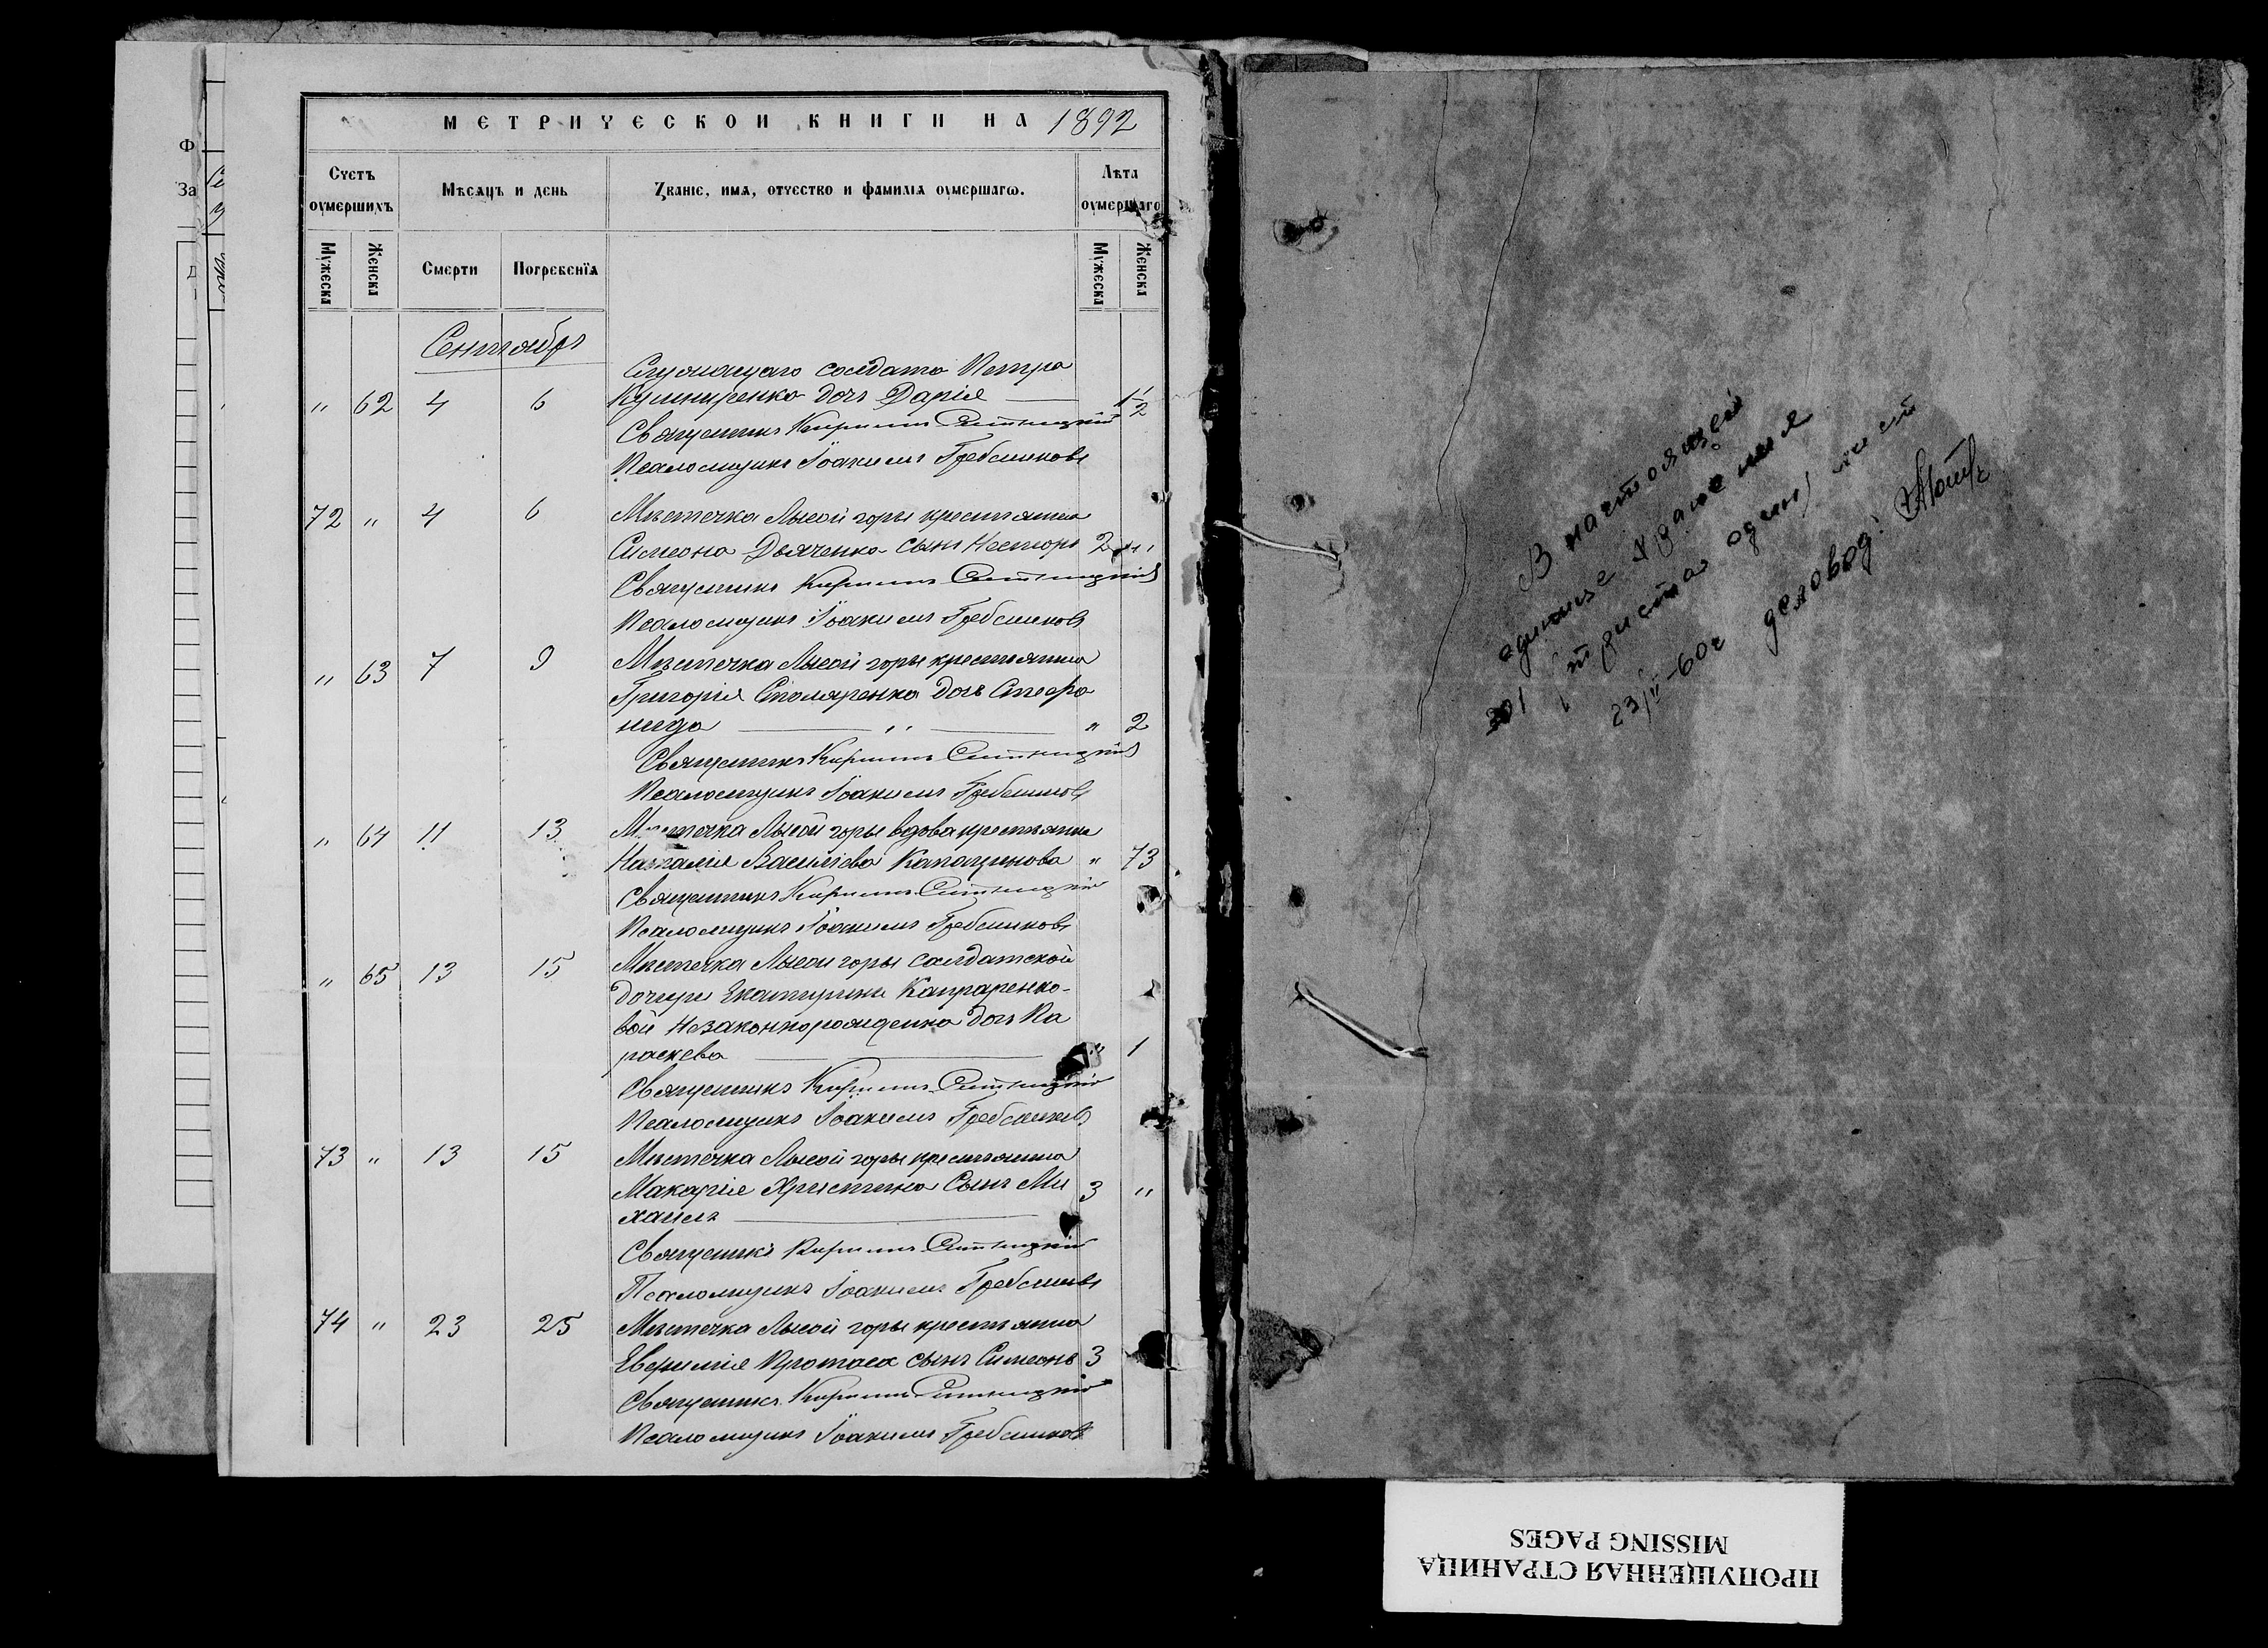 МЕТРИЧЕСКОЙ КНИГИ НА 1892
Счетъ оумершихъ
Мѣсяцъ и день
Званіе, имя, отчество и фамиліа оумершагѡ.
Лѣта оумершаго
Мужеска
Женска
Смерти
Погребенїѧ
Мужеска
Женска
Сентябрь
Служащаго солдата Петра
" 62 4 6 Кушниренко дочь Дарія 1½
Священникъ Кириллъ
Псаломщикъ Іоакимъ Гребенниковъ
72 " 4 6 Мѣстечка Лысой горы крестьянина
Симеона Дьяченко сынъ Несторъ 2
Священникъ Кириллъ
Псаломщикъ Іоакимъ Гребенниковъ
" 63 7 9 Мѣстечка Лысой горы крестьянина
Григорія Столяренка дочь Стефа
нида " " 2
Священникъ Кириллъ
Псаломщикъ Іоакимъ Гребенниковъ
" 64 11 13 Мѣстечка Лысой горы вдова крестьянка
Наталія Василіева " 73
Священникъ Кириллъ
Псаломщикъ Іоакимъ Гребенниковъ
" 65 13 15 Мѣстечка Лысой горы солдатской
дочери Екатерины Капраренко-
вой незаконнорожденна дочь Па
раскева " 1
Священникъ Кириллъ
Псаломщикъ Іоакимъ Гребенниковъ
73 " 13 15 Мѣстечка Лысой горы крестьянина
Макарія Христина Сынъ Ми 3 "
хаилъ
Священникъ Кириллъ
Псаломщикъ Іоакимъ Гребенниковъ
74 " 23 25 Мѣстечка Лысой горы крестьянина
Евфимія Протаса сынъ Симеонъ 3
Священникъ Кириллъ
Псаломщикъ Іоакимъ Гребенниковъ
В настоящей
единице хранения
301 (триста один) лист
23/II-60г деловод:
ПРОПУЩЕННАЯ СТРАНИЦА
MISSING PAGES
Ф
За